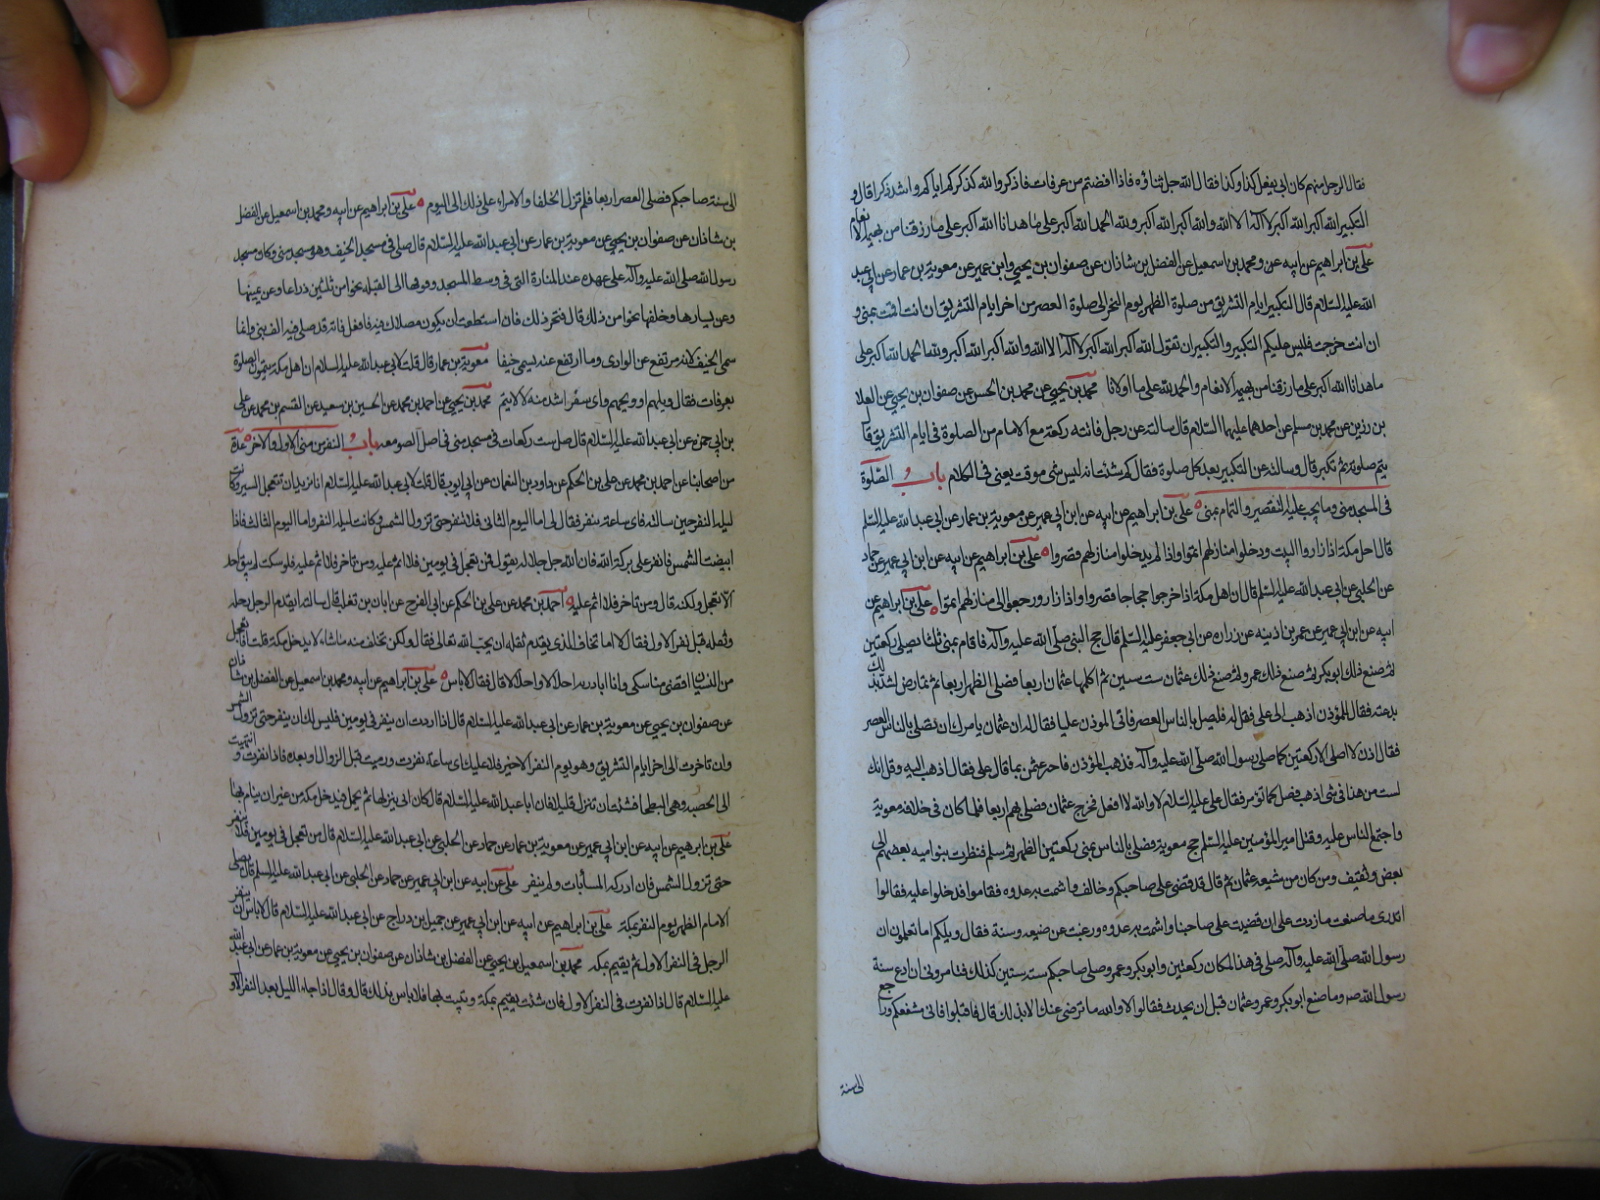 فقال الرجل منهم كان ابي يفعل كذا وكذا فقال الله جل ثناؤه فاذا افضتم من عرفات فاذكروا الله كذكركم اباءكم او اشد ذكرا قال و
التكبير الله اكبر الله اكبر لا اله الا الله والله اكبر الله اكبر ولله الحمد الله اكبر على ما هدانا الله اكبر على ما رزقنا من بهيمة الانعام
على بن ابراهيم عن ابيه عن ومحمد بن اسمعيل عن الفضل بن شاذان عن صفوان بن يحيى وابن عمير عن معوية بن عمار عن ابي عبد
الله عليه السلام قال التكبير ايام التشريق من صلوة الظهر يوم النحر الى صلوة العصر من اخر ايام التشريق ان انت اقمت بمنى و
ان انت خرجت فليس عليكم التكبير والتكبير ان تقول الله اكبر الله اكبر لا اله الا الله والله اكبر الله اكبر ولله الحمد الله اكبر على
ما هدانا الله اكبر على ما رزقنا من بهيمة الانعام والحمد لله على ما اولانا محمد بن يحيى عن محمد بن الحسن عن صفوان بن يحيى عن العلا
بن رزين عن محمد بن مسلم عن احدهما عليهما السلام قال سالته عن رجل فاتته ركعة مع الامام من الصلوة في ايام التشريق قال
يتم صلوته ثم تكبر قال وسالته عن التكبير بعد كل صلوة فقال كم شئت انه ليس شئ موقت يعنى في الكلام باب الصلوة
في المسجد منى وما يجب عليه التقصير والتمام بمنى على بن ابراهيم عن ابيه عن ابن ابي عمير عن معوية بن عمار عن ابي عبد الله عليه السلم
قال اهل مكة اذا زاروا البيت ودخلوا منازلهم اتموا واذا لم يدخلوا منازلهم قصروا على بن ابراهيم عن ابيه عن ابن ابي عمير عن حماد
عن الحلبي عن ابي عبد الله عليه السلم قال ان اهل مكة اذا خرجوا حجاجا قصروا واذا زاروا ورجعوا الى منازلهم اتموا على بن ابراهيم عن
ابيه عن ابن ابي عمير عن عمر بن اذينه عن زراره عن ابي جعفر عليه السلم قال حج النبي صلى الله عليه وآله فاقام بمنى ثلثا يصلى ركعتين
ثم صنع ذلك ابو بكر ثم صنع ذلك عمر ثم صنع ذلك عثمان ست سنين ثم اكملها عثمان اربعا فصلى الظهر اربعا ثم تمارض ليشد بذلك
بدعته فقال للمؤذن اذهب الى على فقل له فليصل بالناس العصر فاتى المؤذن عليا فقال له ان عثمان يامرك ان تصلى بالناس العصر
فقال اذن لا اصلى الا ركعتين كما صلى رسول الله صلى الله عليه وآله فذهب المؤذن فاخبر عثمن بما قال على فقال اذهب اليه وقل انك
لست من هذا في شئ اذهب فصل كما تؤمر فقال على عليه السلام لا والله لا افعل فخرج عثمان فصلى بهم اربعا فلما كان في خلافة معوية
واجتمع الناس عليه وقتل امير المؤمنين عليه السلم حج معوية فصلى بالناس بمنى ركعتين الظهر ثم سلم فنظرت بنو اميه بعضهم الى
بعض وثقيف ومن كان من شيعه عثمان ثم قال قد قضى على صاحبكم وخالف واشمت به عدوه فقاموا فدخلوا عليه فقالوا
اتدرى ما صنعت ما زدت على ان قضيت على صاحبنا واشمت به عدوه ورغبت عن صنيعه وسنة فقال ويلكم اما تعلمون ان
رسول الله صلى الله عليه وآله صلى في هذا المكان ركعتين وابو بكر وعمر وصلى صاحبكم ست سنين كذلك فتامرونى ان ادع سنة
رسول الله صه وما صنع ابو بكر وعمر وعثمان قبل ان يحدث فقالوا لا والله ما نرضى عنك الا بذلك قال فاقبلوا فانى مشفعكم وراجع
الى سنة
الى سنة صاحبكم فصلى العصر اربعا فلم تزل الخلفا والامراء على ذلك الى اليوم على بن ابراهيم عن ابيه ومحمد بن اسمعيل عن الفضل
بن شاذان عن صفوان بن يحيى عن معوية بن عمار عن ابي عبد الله عليه السلام قال صلى في مسجد الخيف وهو مسجد منى وكان مسجد
رسول الله صلى الله عليه وآله على عهده عند المنارة التى في وسط المسجد وفوقها الى القبلة نحوا من ثلثين ذراعا وعن يمينها
وعن يسارها وخلفها نحوا من ذلك قال فتحر ذلك فان استطعت ان يكون مصلاك فيه فافعل فانه قد صلى فيه الف نبى وانما
سمى الخيف لانه مرتفع عن الوادى وما ارتفع عنه يسمى خيفا معوية بن عمار قال قلت لابي عبد الله عليه السلام ان اهل مكة يتمون الصلوة
بعرفات فقال ويلهم او ويحهم واى سفر اشد منه لا لا يتم محمد بن يحيى عن احمد بن محمد عن الحسين بن سعيد عن القسم بن محمد عن على
بن ابي حمزه عن ابي عبد الله عليه السلام قال صل ست ركعات في مسجد منى في اصل الصومعه باب النفر من منى الاول والآخر عدة
من اصحابنا عن احمد بن محمد عن على بن الحكم عن داود بن النعمان عن ابي ايوب قال قلت لابي عبد الله عليه السلام انا نريد ان نتعجل السير وكانت
ليلة النفر حين سالته فاى ساعة ننفر فقال لى اما اليوم الثانى فلا تنفر حتى تزول الشمس وكانت ليلة النفر واما اليوم الثالث فاذا
ابيضت الشمس فانفر على بركة الله فان الله جل جلاله يقول فمن تعجل في يومين فلا اثم عليه ومن تاخر فلا اثم عليه فلو سكت لم يبق احد
الا تعجل ولكنه قال ومن تاخر فلا اثم عليه احمد بن محمد عن على بن الحكم عن ابي الفرج عن ابان بن تغلب قال سالته ايقدم الرجل رحله
وثقله قبل نفر الاول فقال لا اما تخاف الذى يقدم ثقله ان يحبسه الله تعالى فقال ولكن يخلف منه ما شاء لا يدخل مكة قلت افاتعجل
من النسيا اقضى مناسكى وانا ابادر به اهلا لا واحلالا قال فقال لا باس على بن ابراهيم عن ابيه ومحمد بن اسمعيل عن الفضل بن شاذان
عن صفوان بن يحيى عن معوية بن عمار عن ابي عبد الله عليه السلام قال اذا اردت ان ينفر في يومين فليس لك ان ينفر حتى تزول الشمس
وان تاخرت الى اخر ايام التشريق وهو يوم النفر الاخير فلا عليك اى ساعة نفرت ورميت قبل الزوال او بعده فاذا نفرت وانتهيت
الى الحصبه وهى البطحا فشئت ان تنزل قليلا فان ابا عبد الله عليه السلام قال كان ابى ينزلها ثم يحمل فيدخل مكة من غير ان ينام بها
على بن ابرهيم عن ابيه عن ابن ابي عمير عن معوية بن عمار عن حماد عن الحلبي عن ابي عبد الله عليه السلام قال من تعجل في يومين فلا ينفر
حتى تزول الشمس فان ادركه المسا بات ولم ينفر على عن ابيه عن ابن ابي عمير عن حماد عن الحلبي عن ابي عبد الله عليه السلم قال يصلى
الامام الظهر يوم النفر بمكة على بن ابراهيم عن ابيه عن ابن ابي عمير عن جميل بن دراج عن ابي عبد الله عليه السلام قال لا باس ان ينفر
الرجل في النفر الاول ثم يقيم بمكه محمد بن اسمعيل بن يحيى عن الفضل بن شاذان عن صفوان بن يحيى عن معوية بن عمار عن ابي عبد الله
عليه السلام قال اذا نفرت في النفر الاول فان شئت يقيم بمكة وتبيت بها فلا باس بذلك قال وقال اذا جاء الليل بعد النفر الاو